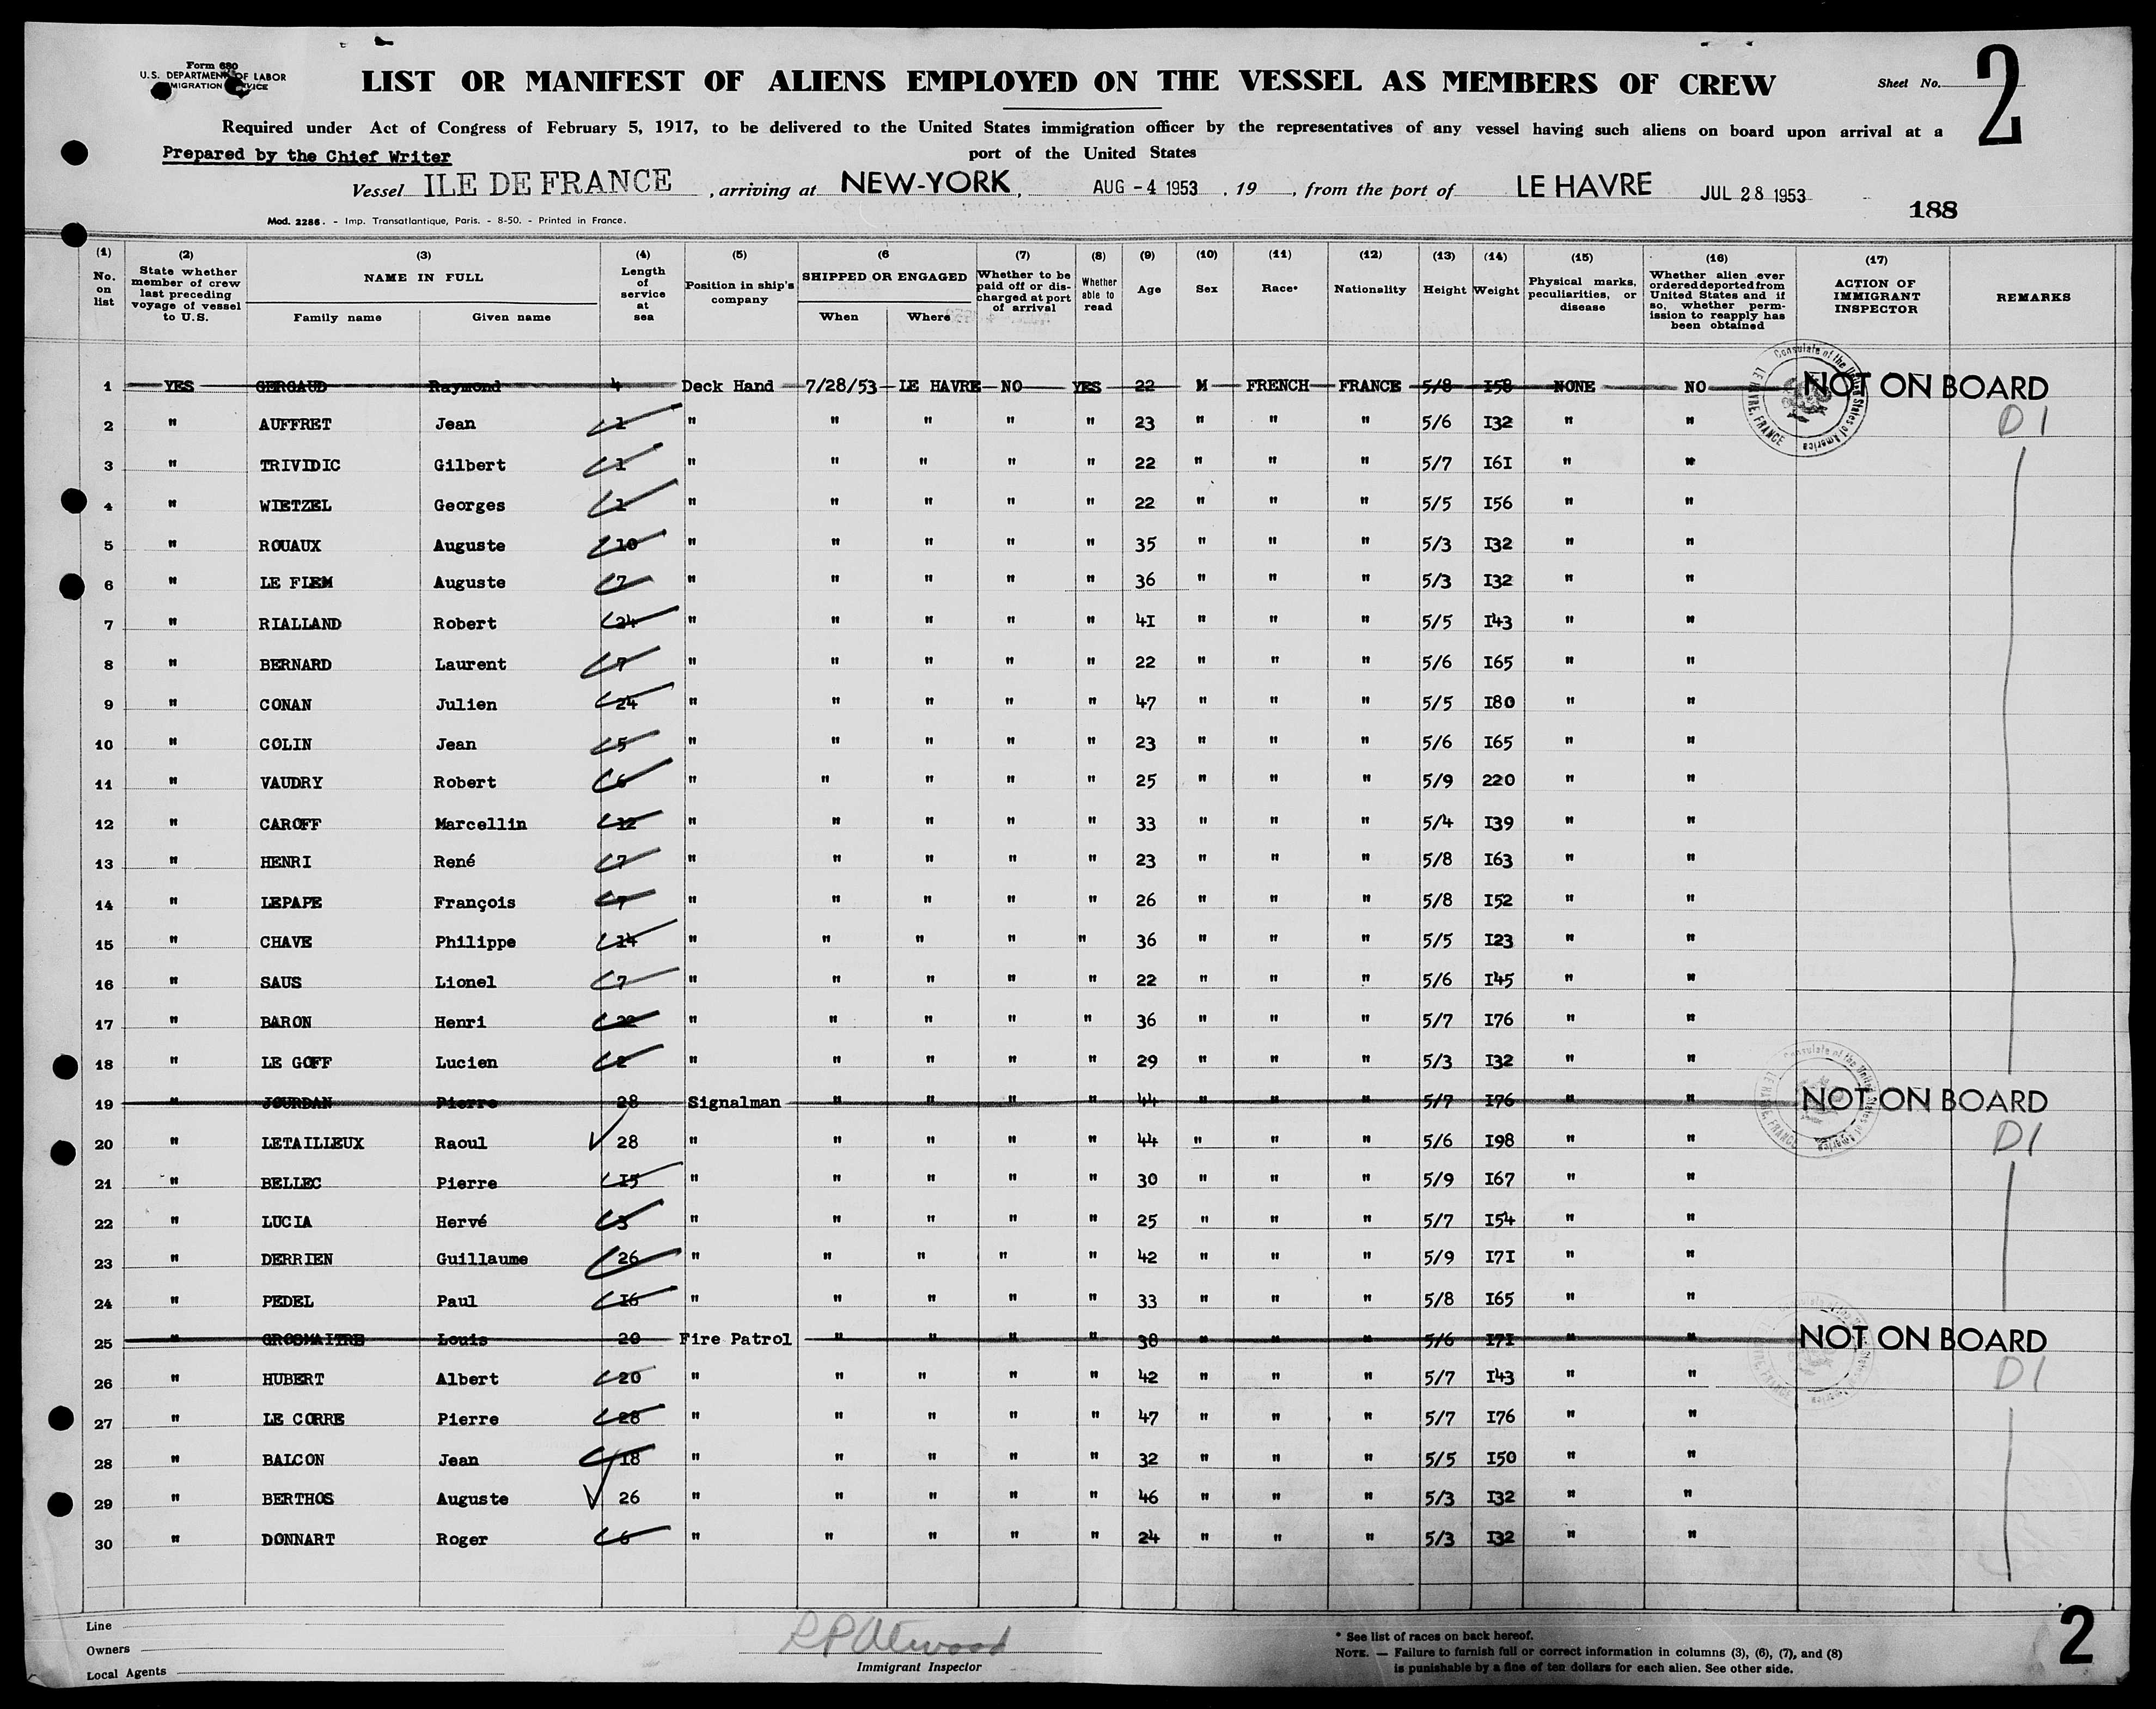 Form 680
U.S. DEPARTMENT OF LABOR
IMMIGRATION SERVICE
LIST OR MANIFEST OF ALIENS EMPLOYED ON THE VESSEL AS MEMBERS OF CREW
Sheet No. 2
Required under Act of Congress of February 5, 1917, to be delivered to the United States immigration officer by the representatives of any vessel having such aliens on board upon arrival at a
Prepared by the Chief Writer
port of the United States
Vessel ILE DE FRANCE , arriving at NEW-YORK , AUG - 4 1953 , 19 , from the port of LE HAVRE JUL 28 1953
Mod. 2286. - Imp. Transatlantique, Paris. - 8-50. - Printed in France.
188
(1) No. on list
(2) State whether member of crew last preceding voyage of vessel to U.S.
(3) NAME IN FULL Family name Given name
(4) Length of service at sea
(5) Position in ship's company
(6 SHIPPED OR ENGAGED When Where
(7) Whether to be paid off or discharged at port of arrival
(8) Whether able to read
(9) Age
(10) Sex
(11) Race*
(12) Nationality
(13) Height
(14) Weight
(15) Physical marks, peculiarities, or disease
(16) Whether alien ever ordered deported from United States and if so, whether permission to reapply has been obtained
(17) ACTION OF IMMIGRANT INSPECTOR
REMARKS
1 YES GERGAUD Raymond 4 Deck Hand 7/28/53 LE HAVRE NO YES 22 M FRENCH FRANCE 5/8 I58 NONE NO NOT ON BOARD
Consulate of the United States of America LE HAVRE, FRANCE
2 " AUFFRET Jean 1 " " " " " 23 " " " 5/6 I32 " " D1
3 " TRIVIDIC Gilbert 1 " " " " " 22 " " " 5/7 I6I " "
4 " WIETZEL Georges 1 " " " " " 22 " " " 5/5 I56 " "
5 " ROUAUX Auguste 10 " " " " " 35 " " " 5/3 I32 " "
6 " LE FLEM Auguste 7 " " " " " 36 " " " 5/3 I32 " "
7 " RIALLAND Robert 24 " " " " " 4I " " " 5/5 I43 " "
8 " BERNARD Laurent 7 " " " " " 22 " " " 5/6 I65 " "
9 " CONAN Julien 24 " " " " " 47 " " " 5/5 I80 " "
10 " COLIN Jean 5 " " " " " 23 " " " 5/6 I65 " "
11 " VAUDRY Robert 6 " " " " " 25 " " " 5/9 220 " "
12 " CAROFF Marcellin 12 " " " " " 33 " " " 5/4 I39 " "
13 " HENRI René 7 " " " " " 23 " " " 5/8 I63 " "
14 " LEPAPE François 7 " " " " " 26 " " " 5/8 I52 " "
15 " CHAVE Philippe 14 " " " " " 36 " " " 5/5 I23 " "
16 " SAUS Lionel 7 " " " " " 22 " " " 5/6 I45 " "
17 " BARON Henri " " " " " 36 " " " 5/7 I76 " "
18 " LE GOFF Lucien 2 " " " " " 29 " " " 5/3 I32 " "
19 " JOURDAN Pierre 28 Signalman " " " " 44 " " " 5/7 I76 " " NOT ON BOARD
Consulate of the United States of America LE HAVRE, FRANCE
20 " LETAILLEUX Raoul 28 " " " " " 44 " " " 5/6 I98 " " D1
21 " BELLEC Pierre I5 " " " " " 30 " " " 5/9 I67 " "
22 " LUCIA Hervé 3 " " " " " 25 " " " 5/7 I54 " "
23 " DERRIEN Guillaume 26 " " " " " 42 " " " 5/9 I7I " "
24 " PEDEL Paul I6 " " " " " 33 " " " 5/8 I65 " "
25 " GROSMAITRE Louis 20 Fire Patrol " " " " 38 " " " 5/6 I7I " " NOT ON BOARD
26 " HUBERT Albert 20 " " " " " 42 " " " 5/7 I43 " " D1
27 " LE CORRE Pierre 28 " " " " " 47 " " " 5/7 I76 " "
28 " BALCON Jean 18 " " " " " 32 " " " 5/5 I50 " "
29 " BERTHOS Auguste 26 " " " " " 46 " " " 5/3 I32 " "
30 " DONNART Roger 6 " " " " " 24 " " " 5/3 I32 " "
Line
Owners
Local Agents
R P Atwood
Immigrant Inspector
* See list of races on back hereof.
NOTE. — Failure to furnish full or correct information in columns (3), (6), (7), and (8)
is punishable by a fine of ten dollars for each alien. See other side.
2